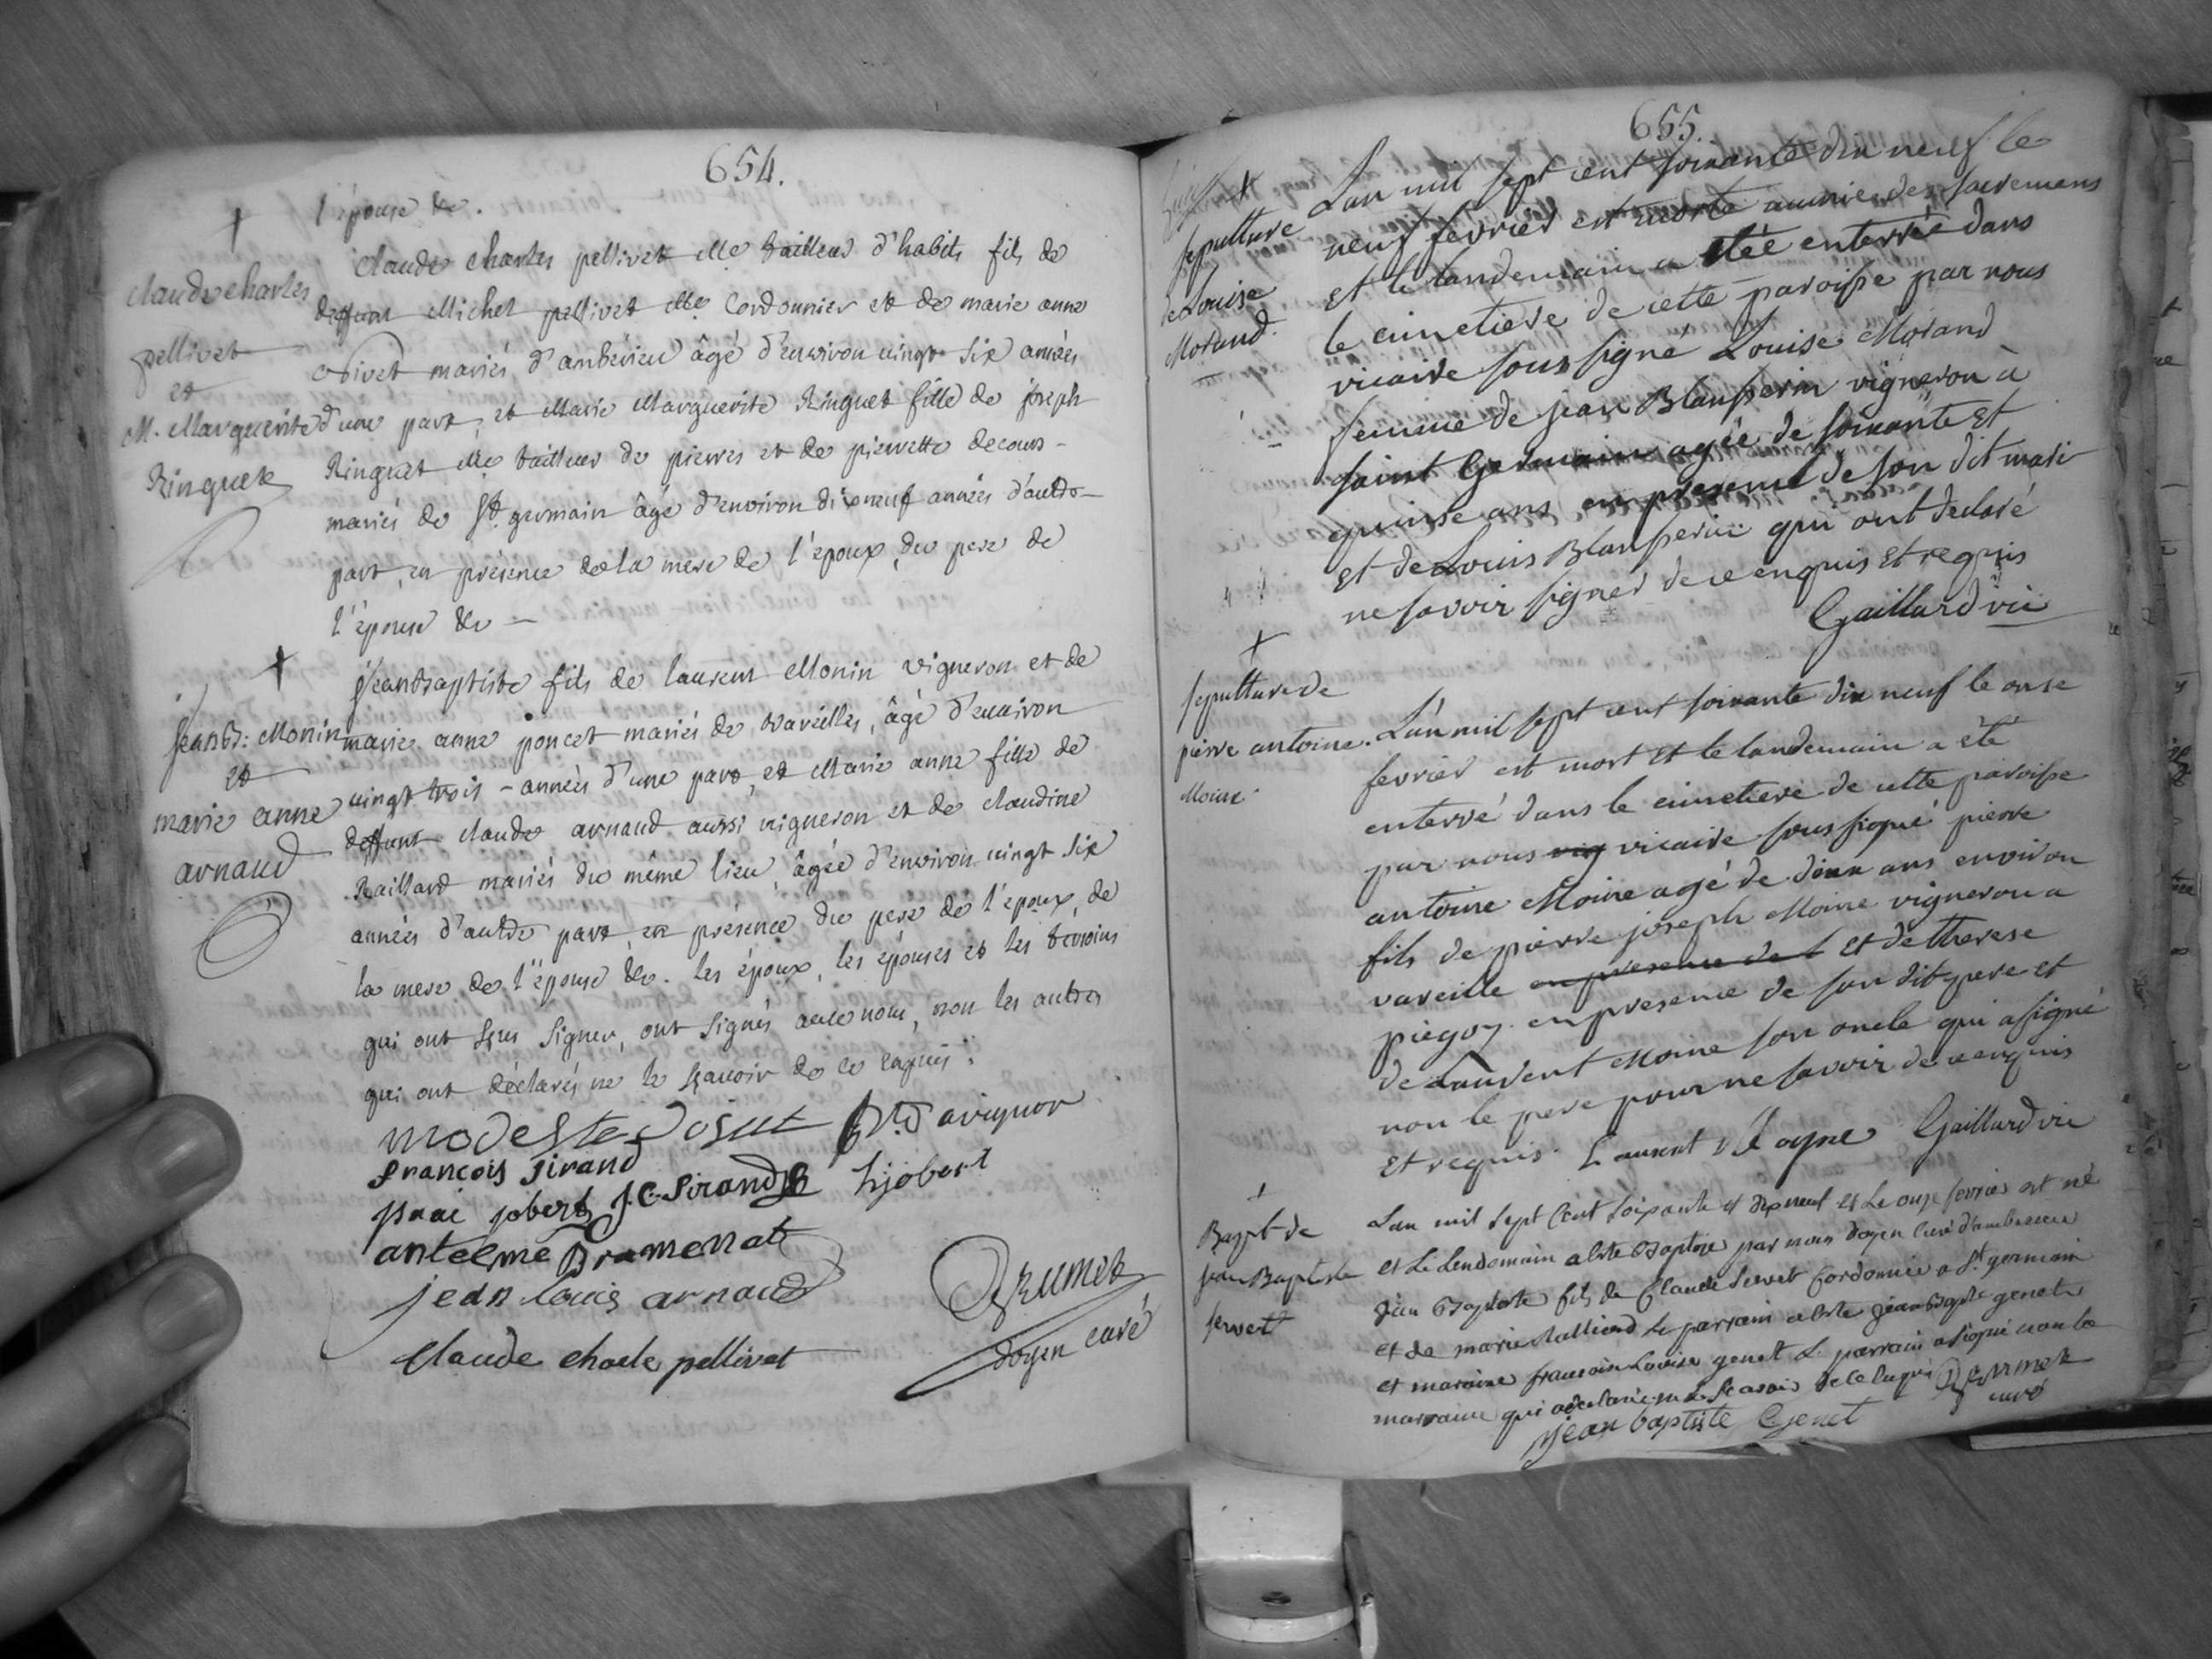 654.
l'épouse &c.
†
Claude charles
pellivet
et
M. Marguerite
Ringuet
Claude charles pellivet Me tailleur d'habits fils de
deffunt Michel pellivet Me Cordonnier et de marie anne
mariés d'ambérieu âgé d'environ vingt six années
d'une part, et Marie Marguerite Ringuet fille de joseph
Ringuet Me tailleur de pierres et de pierrette decours-
mariés de St. germain âgé d'environ dixneuf années d'autre-
part, en présence de la mere de l'époux, du pere de
l'épouse &c -
†
JeanB: Monin
et
marie anne
arnaud
Jeanbaptiste fils de laurent Monin vigneron et de
marie anne poncet mariés de vareilles, âgé d'environ
vingt trois - années d'une part, et Marie anne fille de
deffunt claude arnaud aussi vigneron et de claudine
Raillard mariés du même lieu, âgée d'environ vingt six
années d'autre part, en présence du pere de l'époux, de
la mere de l'épouse &c. les époux, les épouses et les temoins
qui ont sçus signer, ont signés avec nous, non les autres
qui ont déclarés ne le sçavoir de ce enquis :
modeste avignon
francois sirand
jobert J.C. Sirand hjobert
antelme Bramerat
jean louis arnaud
Claude charle pellivet
Grumet
doyen curé
655.
†
sepulture
de Louise
Morand.
L'an mil sept cent soixante dix neuf le
neuf fevrier est morte munie des sacremens
et le landemain a étée enterrée dans
le cimetiere de cette paroisse par nous
vicaire sous signé Louise Morand
femme de jean Blanserin vigneron à
saint Germain agée de soixante et
quinse ans en presence de son dit mari
et de Louis Blanserin qui ont declaré
ne savoir signer de ce enquis et requis
Gaillard vic
†
sepulture de
pierre antoine
Moine
L'an mil sept cent soixante dix neuf le onse
fevrier est mort et le landemain a été
enterré dans le cimetiere de cette paroisse
par nous vig vicaire sous signé pierre
antoine Moine agé de deux ans environ
fils de pierre joseph Moine vigneron a
vareille en presence de l et de therese
piegoy en presence de son dit pere et
de Laurent Moine son oncle qui a signé
non le pere pour ne savoir de ce enquis
et requis. Laurent Moyne Gaillard vic
†
Bapt de
jean Baptiste
servet
L'an mil sept cent soixante et dix neuf et le onze fevrier est né
et le lendemain a été baptisé par nous doyen curé d'amberieu
jean Baptiste fils de Claude servet cordonnier a St. germain
et de marie Ralliard le parrain a été jean Bapte genet
et maraine francoise Louise genet le parrain a signé non la
marraine qui a declaré ne le scavoir de ce enquis Grumet
curé
jean baptiste Genet